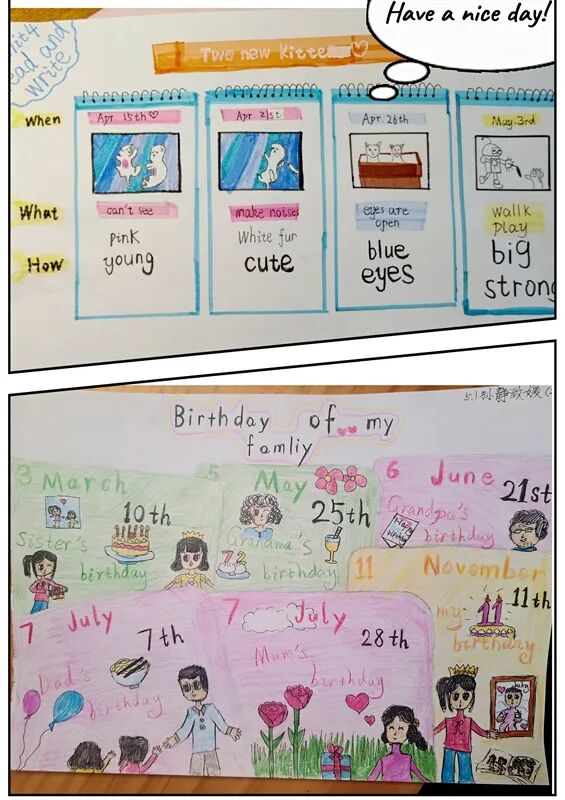 Have a nice day!
Unit4
Read and
write
Two new kittens
When
Apr. 15th
Apr. 21st
Apr. 26th
May. 3rd
What
can't see
make noises
eyes are
open
wallk
play
How
pink
young
White fur
cute
blue
eyes
big
strong
5.1孙静致媛
Birthday of my
famliy
3 March
10th
Sister's
birthday
5 May
25th
Grandma's
birthday
72
6 June
21st
Grandpa's
birthday
Happy
birthday
11 November
11th
my
birthday
11
7 July
7th
Dad's
birthday
7 July
28th
Mum's
birthday